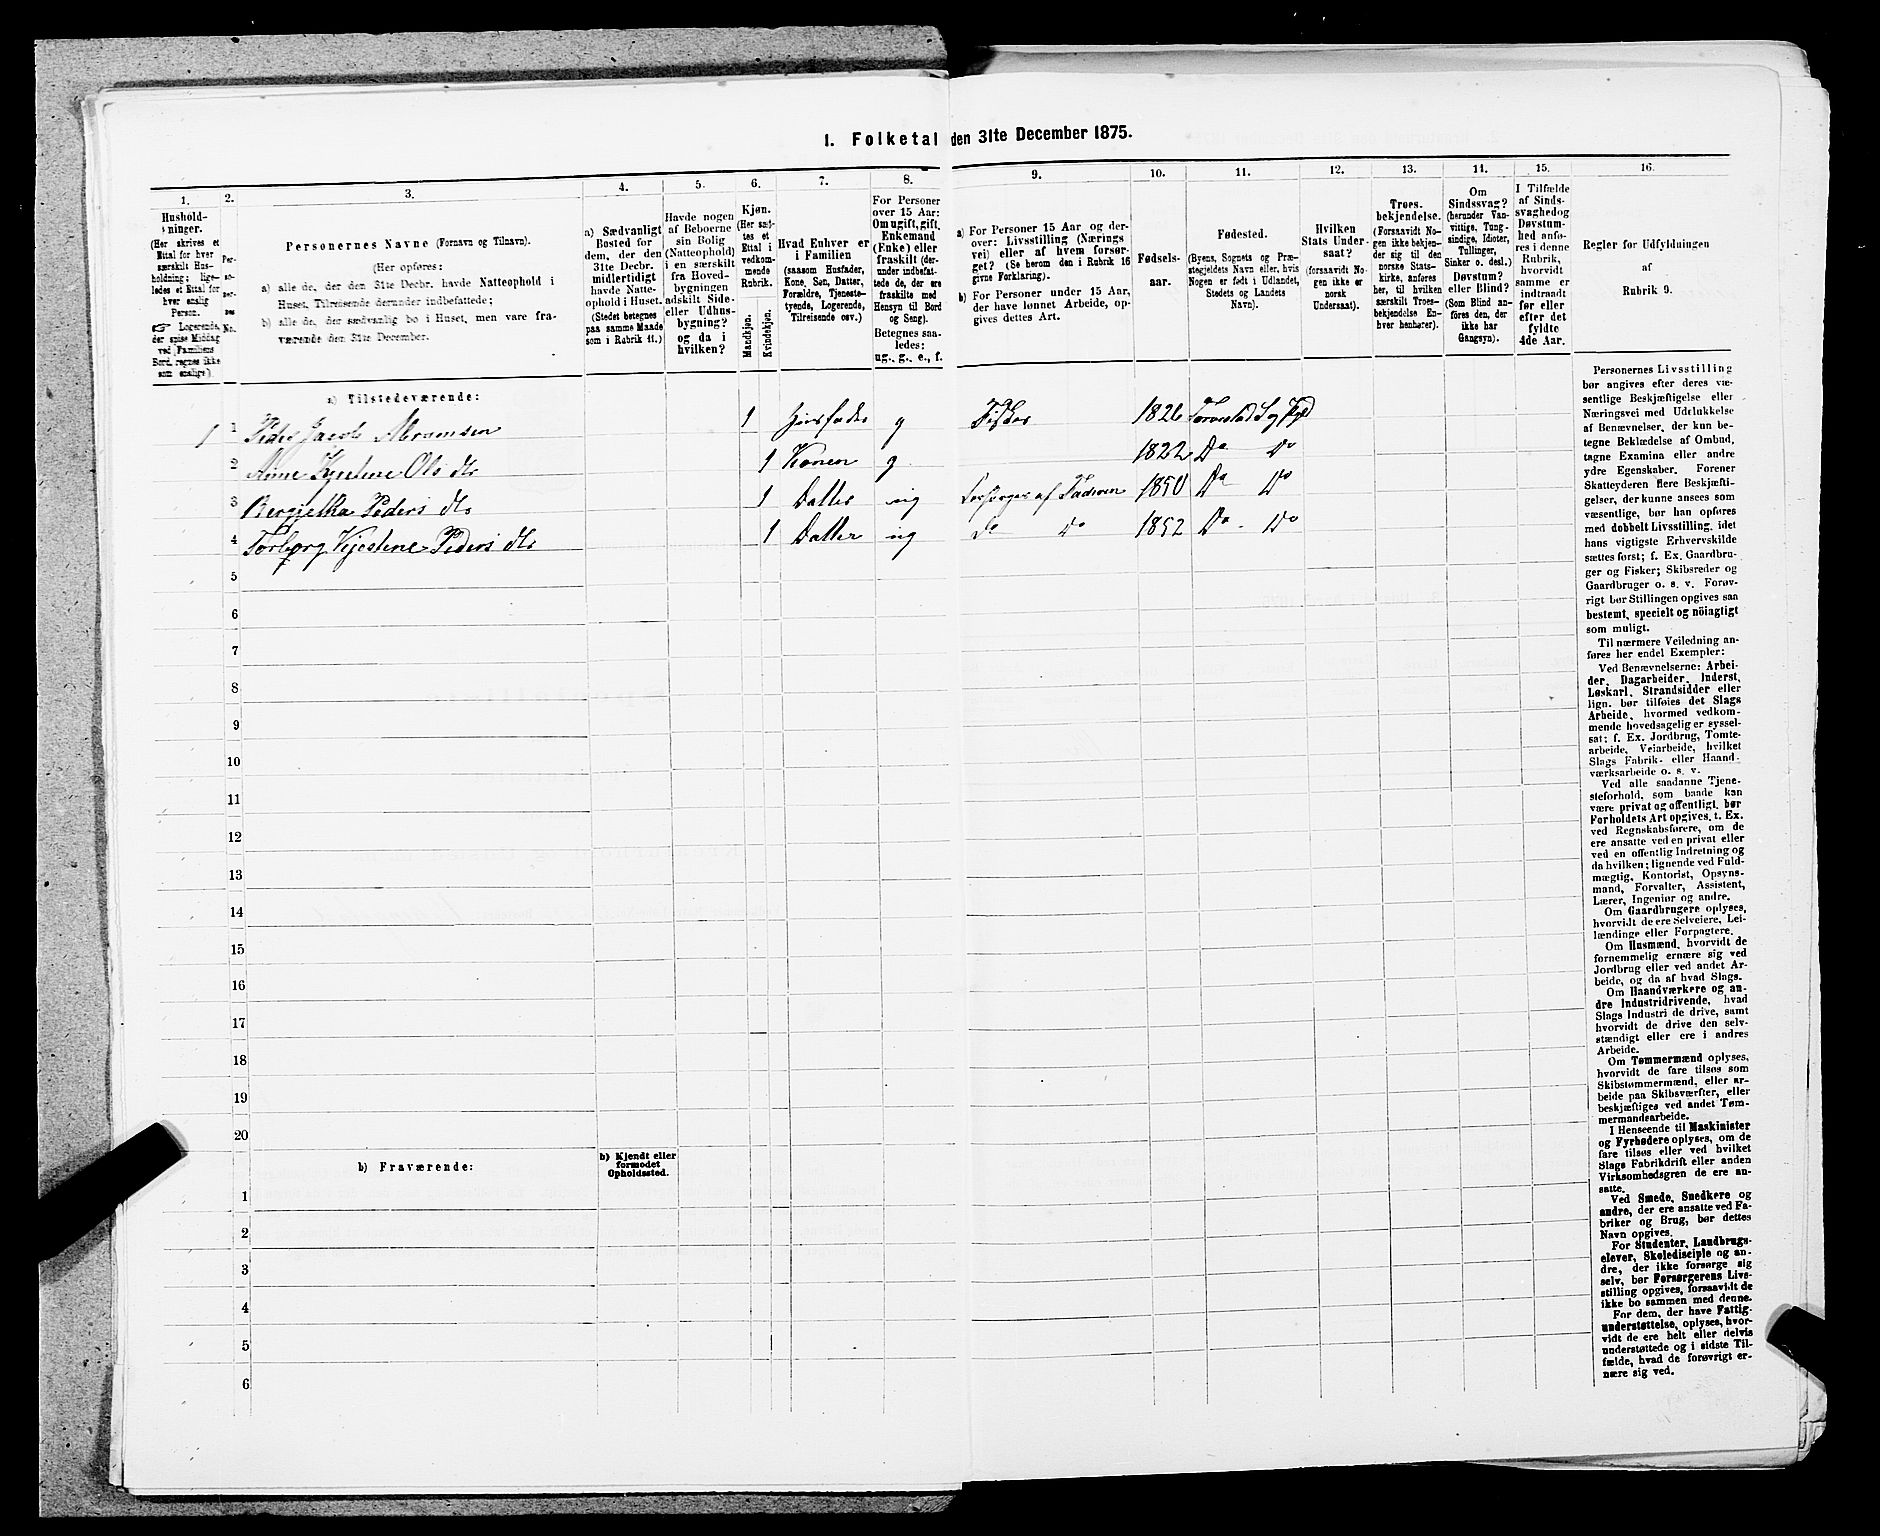 1. Folketal den 31te December 1875.
1. 2. 3. 4. 5. 6. 7. 8. 9. 10. 11. 12. 13. 14. 15. 16.
Hushold-
ninger.
(Her skrives et
Ettal for hver
særskilt Hus-
holdning; lige-
ledes et Ettal for
hver enslig
Person.
☞ Logerende,
der spise Middag
ved Familiens
Bord, regnes ikke
som enslige).
Per-
so-
ner-
nes
No.
Personernes Navne (Fornavn og Tilnavn).
(Her opføres:
a) alle de, der den 31te Decbr. havde Natteophold i
Huset, Tilreisende derunder indbefattede;
b) alle de, der sædvanlig bo i Huset, men vare fra-
værende den 31te December.
a) Sædvanligt
Bosted for
dem, der den
31te Decbr.
midlertidigt
havde Natte-
ophold i Huset.
(Stedet betegnes
paa samme Maade
som i Rubrik 11.)
Havde nogen
af Beboerne
sin Bolig
(Natteophold)
i en særskilt
fra Hoved-
bygningen
adskilt Side-
eller Udhus-
bygning?
og da i
hvilken?
Kjøn.
(Her sæt-
tes et
Ettal i
vedkom-
mende
Rubrik.
Mandkjøn.
Kvindekjøn.
Hvad Enhver er
i Familien
(saasom Husfader,
Kone, Søn, Datter,
Forældre, Tjeneste-
tyende, Logerende,
Tilreisende osv.)
For Personer
over 15 Aar:
Om ugift, gift,
Enkemand
(Enke) eller
fraskilt (der-
under indbefat-
tede de, der ere
fraskilte med
Hensyn til Bord
og Seng).
Betegnes saa-
ledes:
ug., g., e., f.
a) For Personer 15 Aar og der-
over: Livsstilling (Nærings
vei) eller af hvem forsør-
get? (Se herom den i Rubrik 16
givne Forklaring).
b) For Personer under 15 Aar,
der have lønnet Arbeide, op-
gives dettes Art.
Fødsels-
aar.
Fødested.
(Byens, Sognets og Præ-
stegjeldets Navn eller, hvis
Nogen er født i Udlandet,
Stedets og Landets
Navn).
Hvilken
Stats Under-
saat?
(forsaavidt No-
gen ikke er
norsk
Undersaat).
Troes-
bekjendelse.
(Forsaavidt No-
gen ikke bekjen-
der sig til den
norske Stats-
kirke, anføres
her, til hvilken
særskilt Troes-
bekjendelse En-
hver henhører).
Om
Sindssvag?
(herunder Van-
vittige, Tung-
sindige, Idioter,
Tullinger,
Sinker o. desl.)
Døvstum?
eller Blind?
(Som Blind an-
føres den, der
ikke har
Gangsyn).
I Tilfælde
af Sinds-
svaghed og
Døvstum-
hed anfø-
res i denne
Rubrik,
hvorvidt
samme er
indtraadt
før eller
efter det
fyldte
4de Aar.
Regler for Udfyldningen
af
Rubrik 9.
a) Tilstedeværende:
1 1 Peder Jacob Abramsen 1 Husfader g Fisker 1826
2 Anne Kjestene Ols dtr 1 Konen g 1822 Do Do
3 Pedersdtr 1 Datter ug Forsørges af Faderen 1850 Do Do
4 Torborg Kjestene Peders dtr 1 Datter ug do Do 1852 Do Do
5
6
7
8
9
10
11
12
13
14
15
16
17
18
19
20
b) Fraværende:
b) Kjendt eller
formodet
Opholdssted.
1
2
3
4
5
6
Personernes Livsstilling
bør angives efter deres væ-
sentlige Beskjæftigelse eller
Næringsvei med Udelukkelse
af Benævnelser, der kun be-
tegne Beklædelse af Ombud,
tagne Examina eller andre
ydre Egenskaber. Forener
Skatteyderen flere Beskjæfti-
gelser, der kunne ansees som
væsentlige, bør han opføres
med dobbelt Livsstilling, idet
hans vigtigste Erhvervskilde
sættes først; f. Ex. Gaardbru-
ger og Fisker; Skibsreder og
Gaardbruger o. s. v. Forøv-
rigt bør Stillingen opgives saa
bestemt, specielt og nöiagtigt
som muligt.
Til nærmere Veiledning an-
føres her endel Exempler:
Ved Benævnelserne: Arbei-
der, Dagarbeider, Inderst,
Løskarl, Strandsidder eller
lign. bør tilføies det Slags
Arbeide, hvormed vedkom-
mende hovedsagelig er syssel-
sat; f. Ex. Jordbrug, Tomte-
arbeide, Veiarbeide, hvilket
Slags Fabrik- eller Haand-
værksarbeide o. s. v.
Ved alle saadanne Tjene-
steforhold, som baade kan
være privat og offentligt, bør
Forholdets Art opgives, t. Ex.
ved Regnskabsførere, om de
ere ansatte ved en privat eller
ved en offentlig Indretning og
da hvilken; lignende ved Fuld-
mægtig, Kontorist, Opsyns-
mand, Forvalter, Assistent,
Lærer, Ingeniør og andre.
Om Gaardbrugere oplyses,
hvorvidt de ere Selveiere, Lei-
lændinge eller Forpagtere.
Om Husmænd, hvorvidt de
fornemmelig ernære sig ved
Jordbrug eller ved andet Ar-
beide, og da af hvad Slags.
Om Haandværkere og an-
dre Industridrivende, hvad
Slags Industri de drive, samt
hvorvidt de drive den selv-
stændigt eller ere i andres
Arbeide.
Om Tømmermænd oplyses,
hvorvidt de fare tilsøs som
Skibstømmermænd, eller ar-
beide paa Skibsværfter, eller
beskjæftiges ved andet Tøm-
mermandearbeide.
I Henseende til Maskinister
og Fyrbødere oplyses, om de
fare tilsøs eller ved hvilket
Slags Fabrikdrift eller anden
Virksomhedsgren de ere an-
satte.
Ved Smede, Snedkere og
andre, der ere ansatte ved Fa-
briker og Brug, bør dettes
Navn opgives.
For Studenter, Landbrugs-
elever, Skoledisciple og an-
dre, der ikke forsørge sig
selv, bør Forsørgerens Livs-
stilling opgives, forsaavidt de
ikke bo sammen med denne.
For dem, der have Fattig-
understøttelse, oplyses, hvor-
vidt de ere helt eller delvis
understøttede og i sidste Til-
fælde, hvad de forøvrigt er-
nære sig ved.